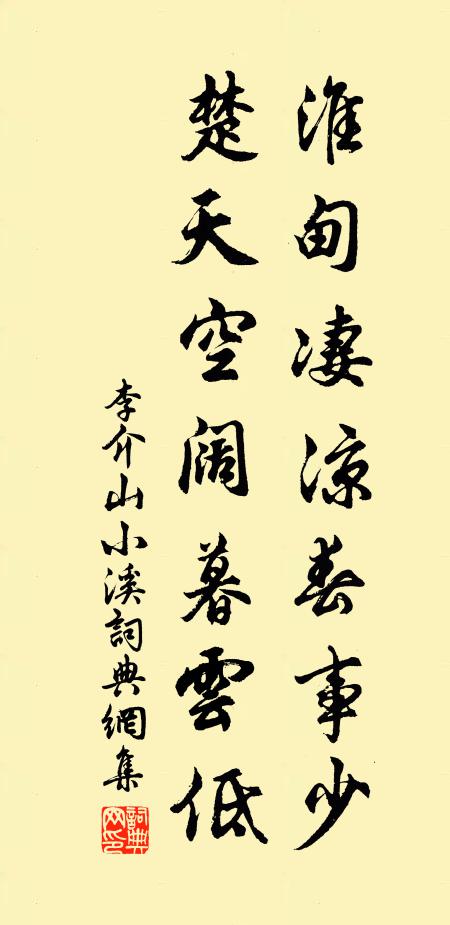 淮甸凄涼春事少
楚天空闊暮雲低
李介山小溪詞典網集
詞典網印